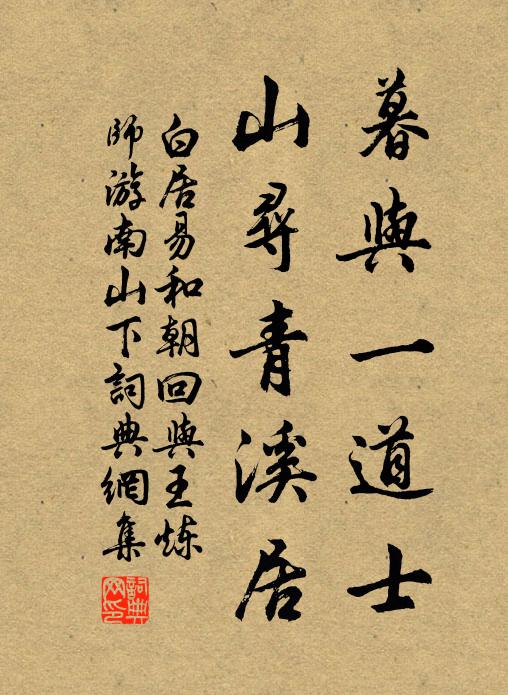 暮與一道士
山尋青溪居
白居易和朝回與王炼
師游南山下詞典網集
詞典网印